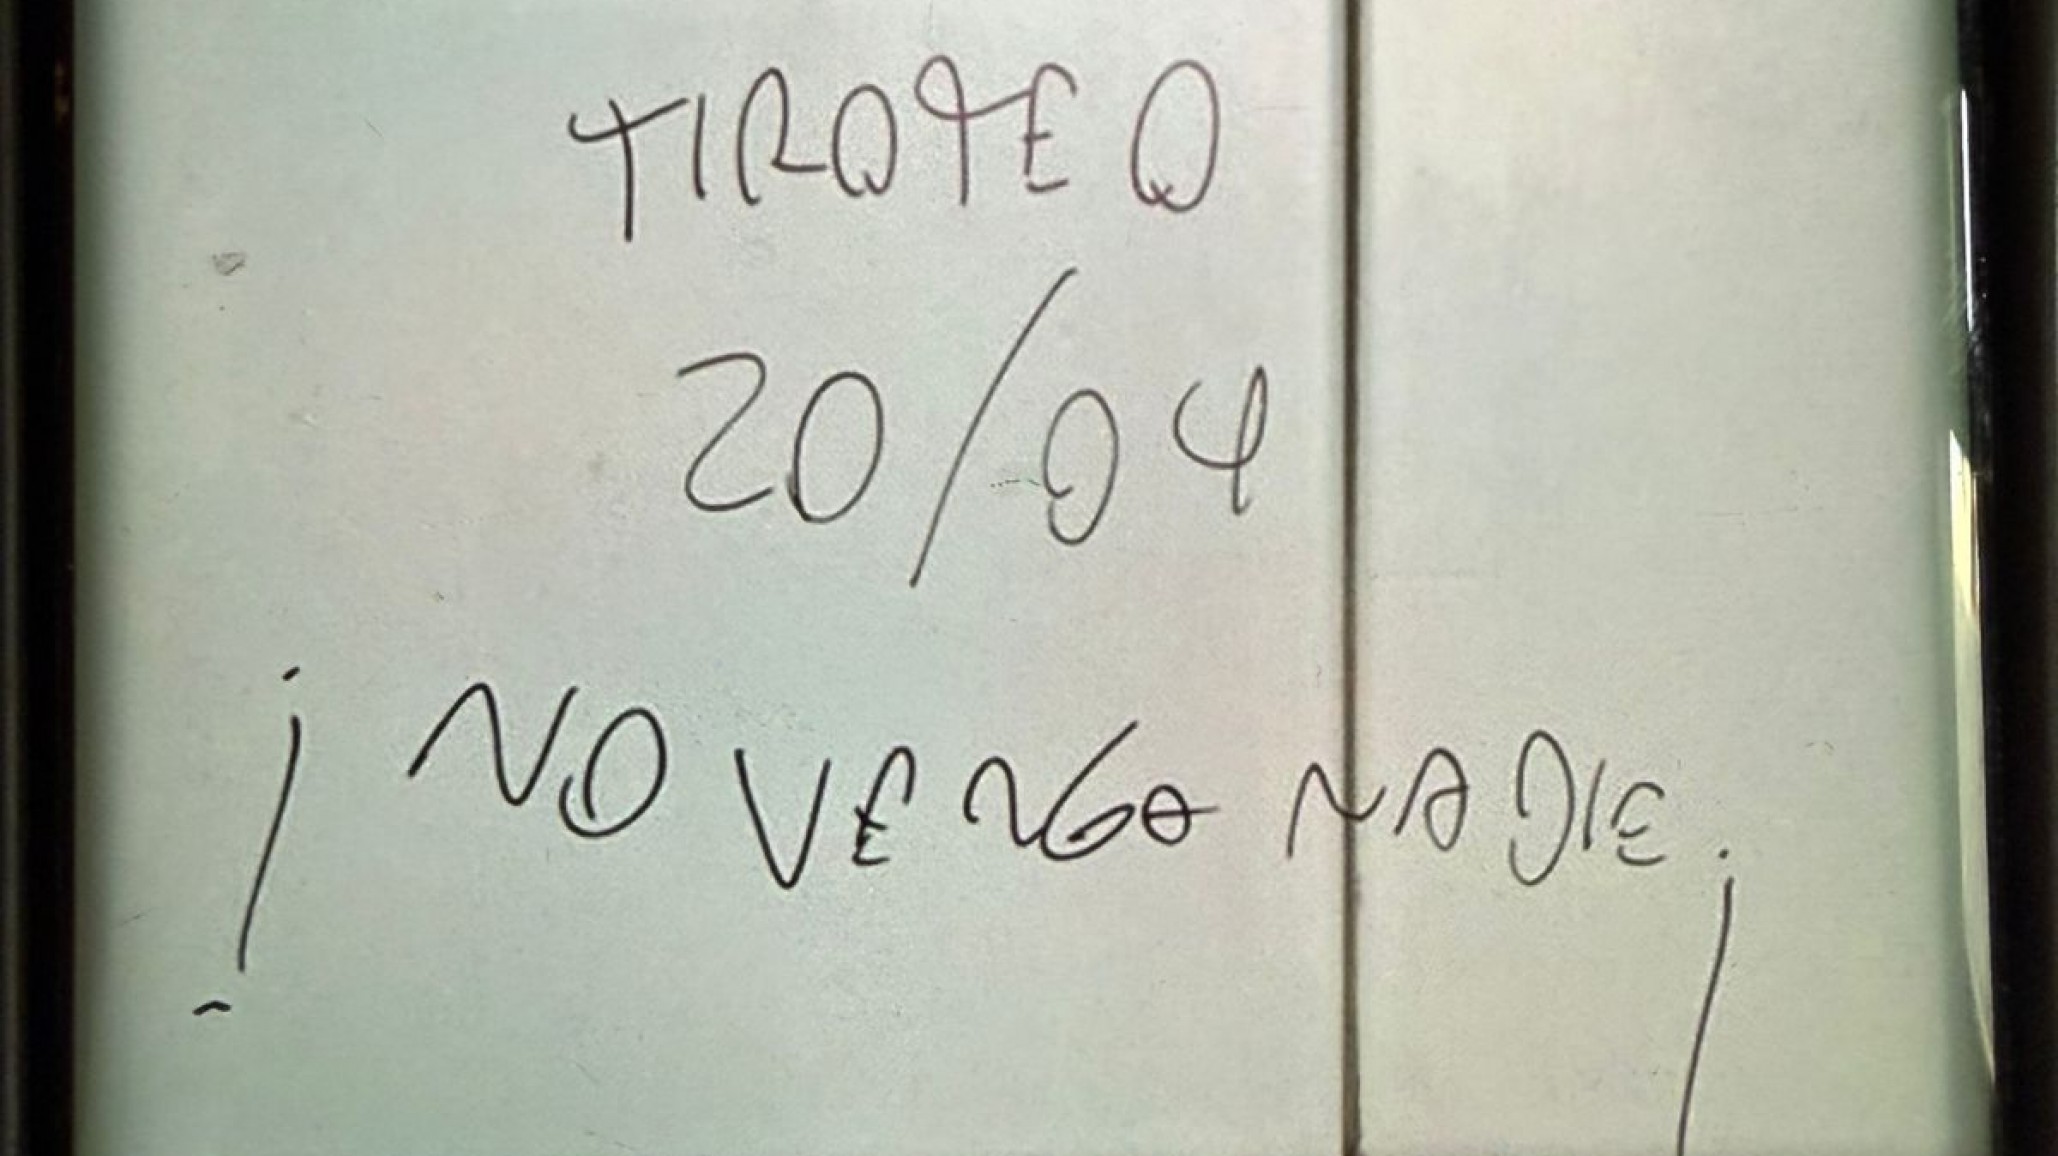 TIROTEO
20/04
¡NO VENGA NADIE!